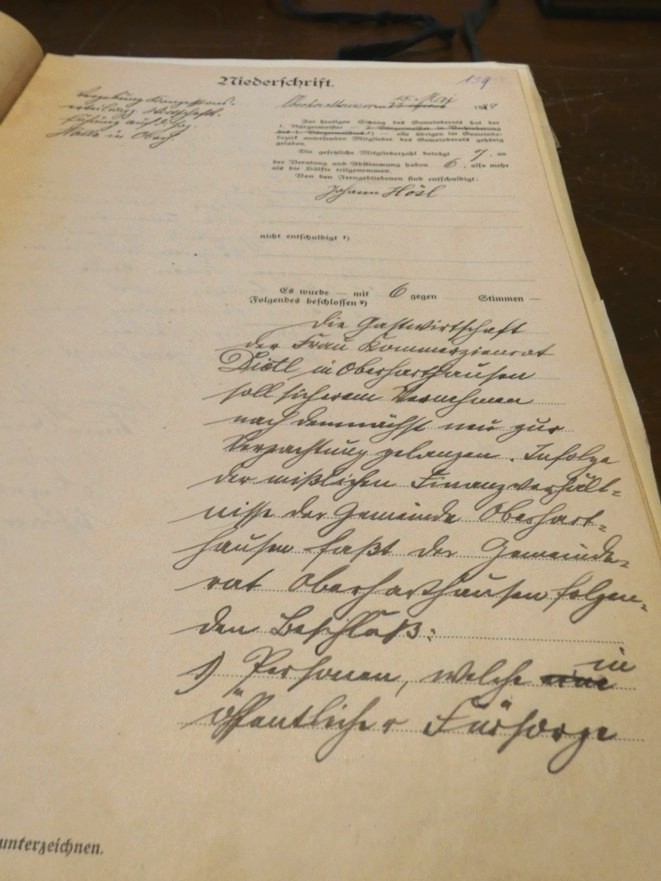 Niederschrift.
159
15. Mai
Zur heutigen Sitzung des Gemeinderats hat der
1. Bürgermeister — 2. Bürgermeister in Verhinderung
des 1. Bürgermeisters — alle übrigen im Gemeinde-
bezirk anwesenden Mitglieder des Gemeinderats gehörig
geladen.
Die gesetzliche Mitgliederzahl beträgt 7. an
der Beratung und Abstimmung haben 6. also mehr
als die Hälfte teilgenommen.
Von den Ferngebliebenen sind entschuldigt:
Johann Hösl
nicht entschuldigt ¹)
Es wurde — mit 6 gegen Stimmen —
Folgendes beschlossen ²)
Die Gastwirtschaft
der Frau Kommerzienrat
in Oberharthausen
soll sicherem Vernehmen
nach demnächst neu zur
Verpachtung gelangen. Infolge
der mißlichen Finanzverhält-
nisse der Gemeinde Oberhart-
hausen faßt der Gemeinde-
rat Oberharthausen folgen-
den Beschluß:
1) Personen, welche eine in
öffentlicher Fürsorge
unterzeichnen.